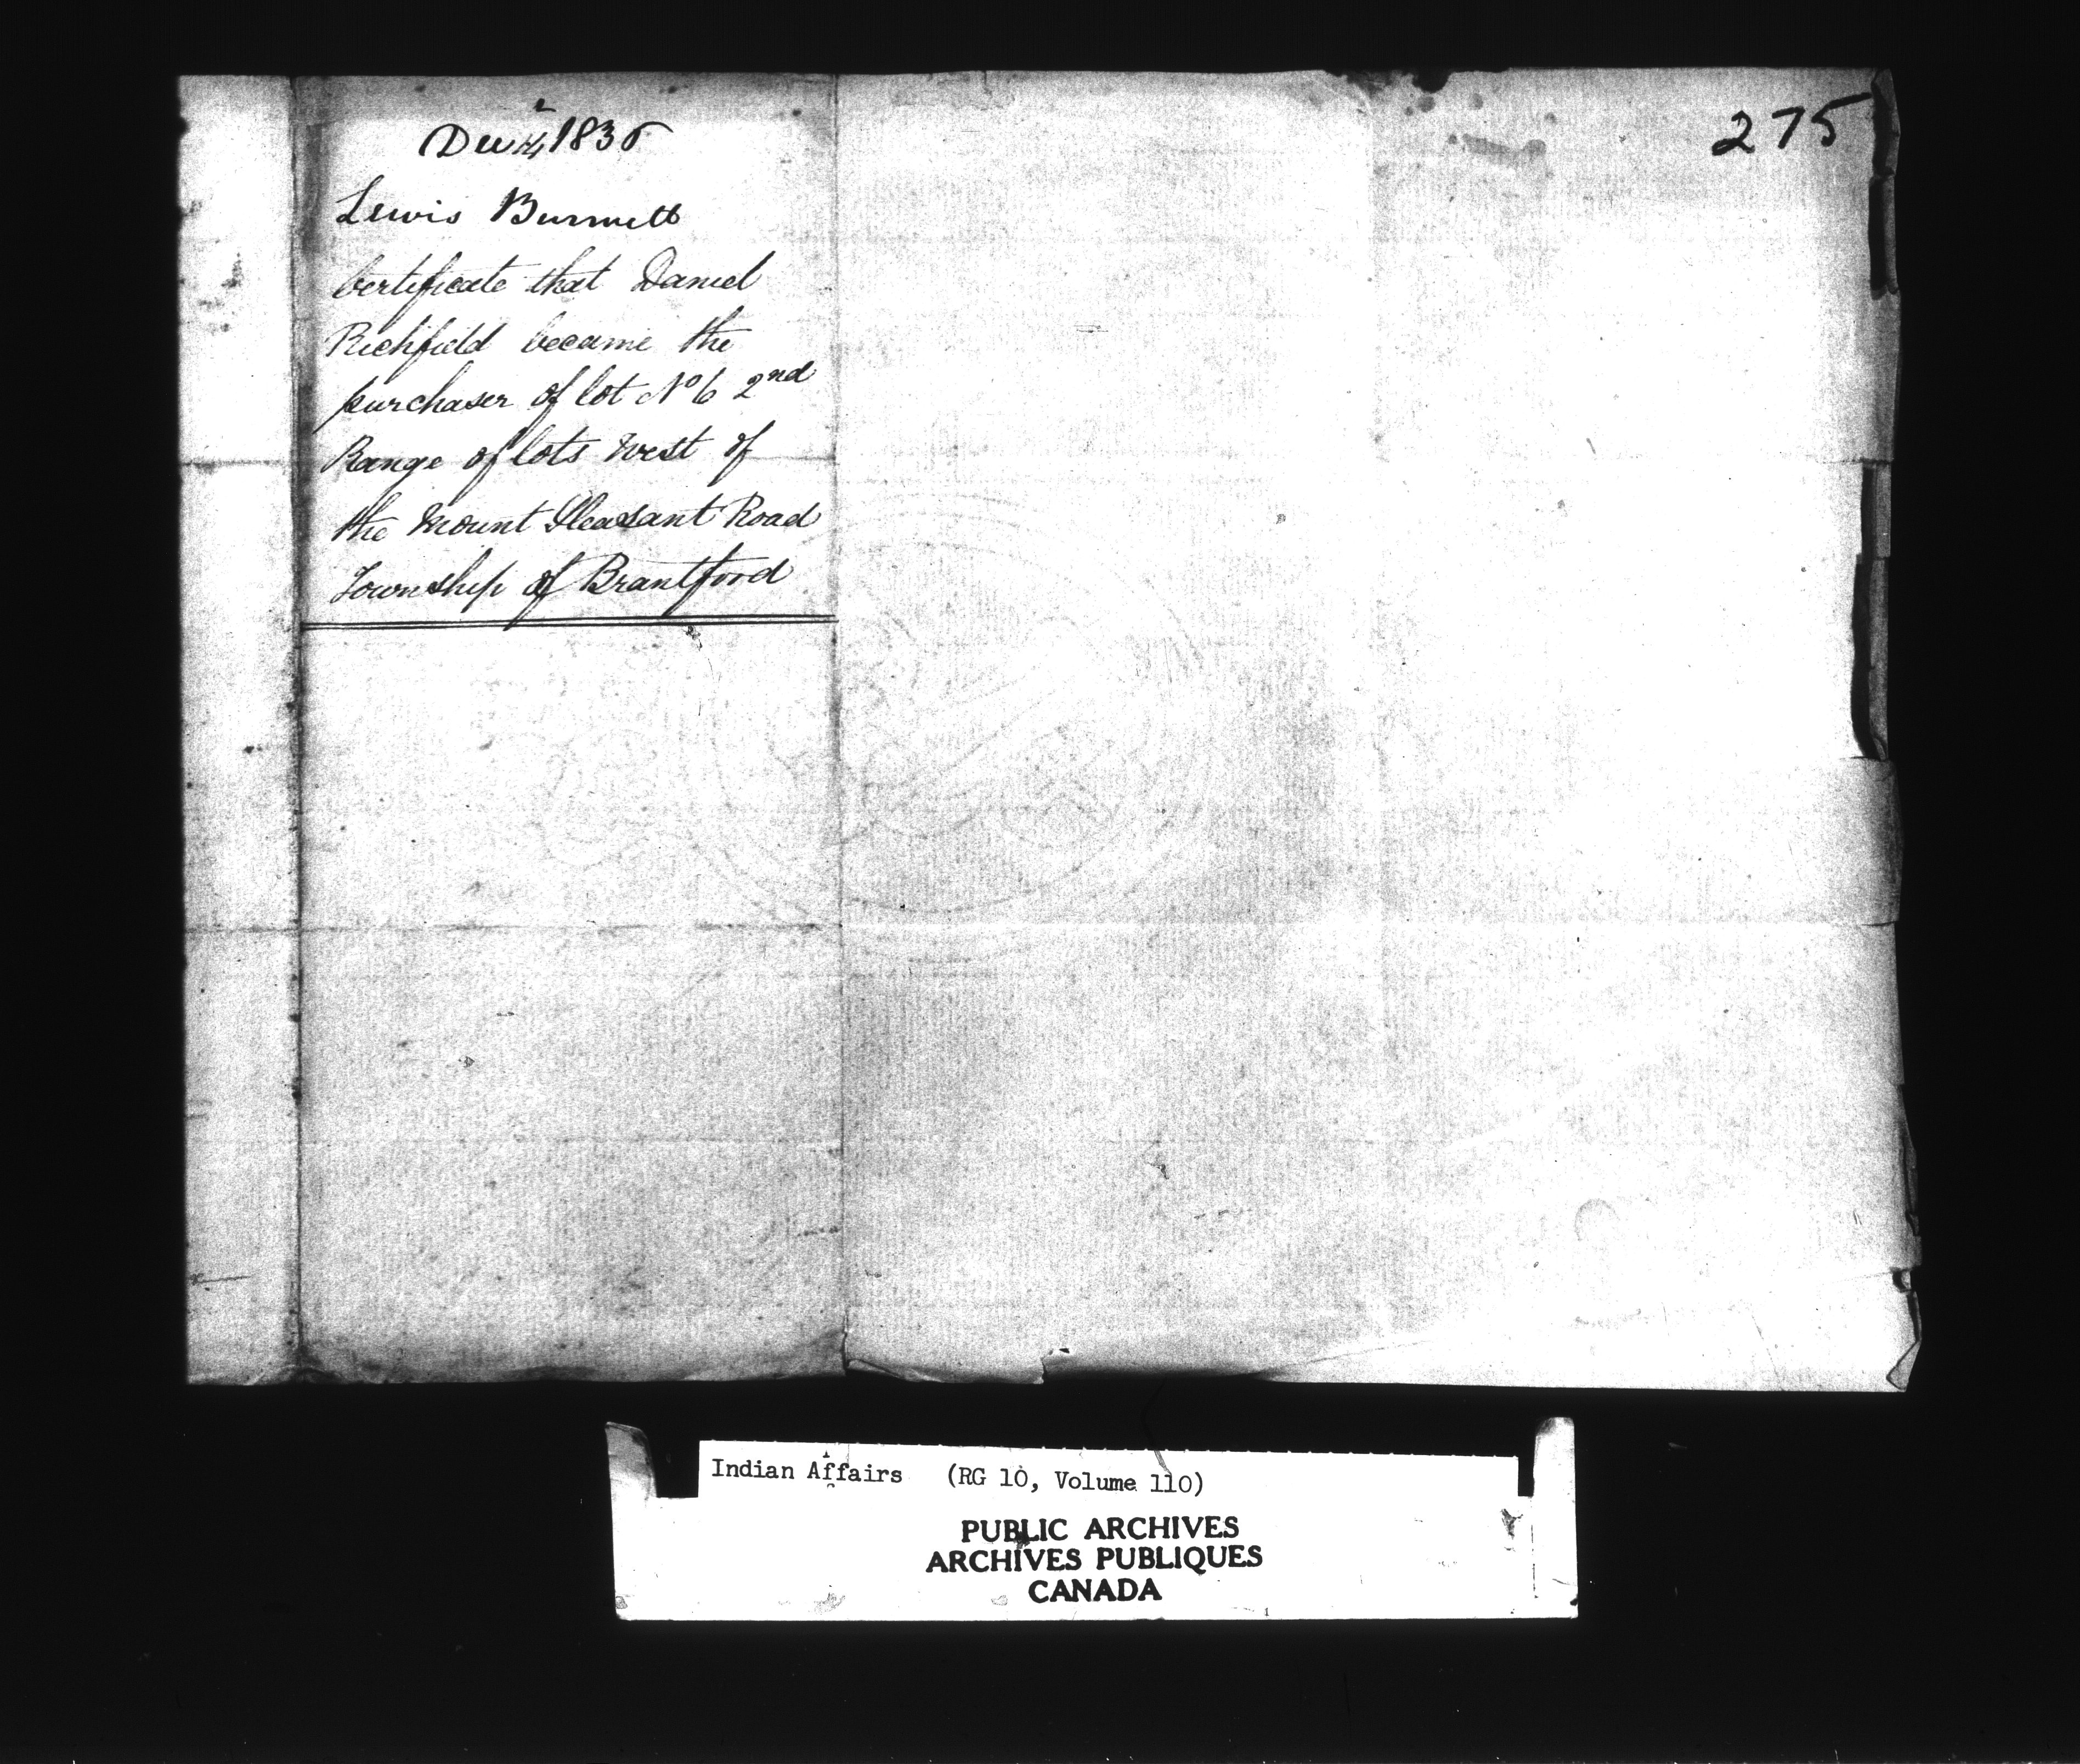 275
Decr 14, 1835
Lewis Burwell
Certificate that Daniel
Richfield became the
purchaser of lot No 6 2nd
Range of lots West of
the Mount Pleasant Road
Township of Brantford
Indian Affairs (RG 10, Volume 110)
PUBLIC ARCHIVES
ARCHIVES PUBLIQUES
CANADA